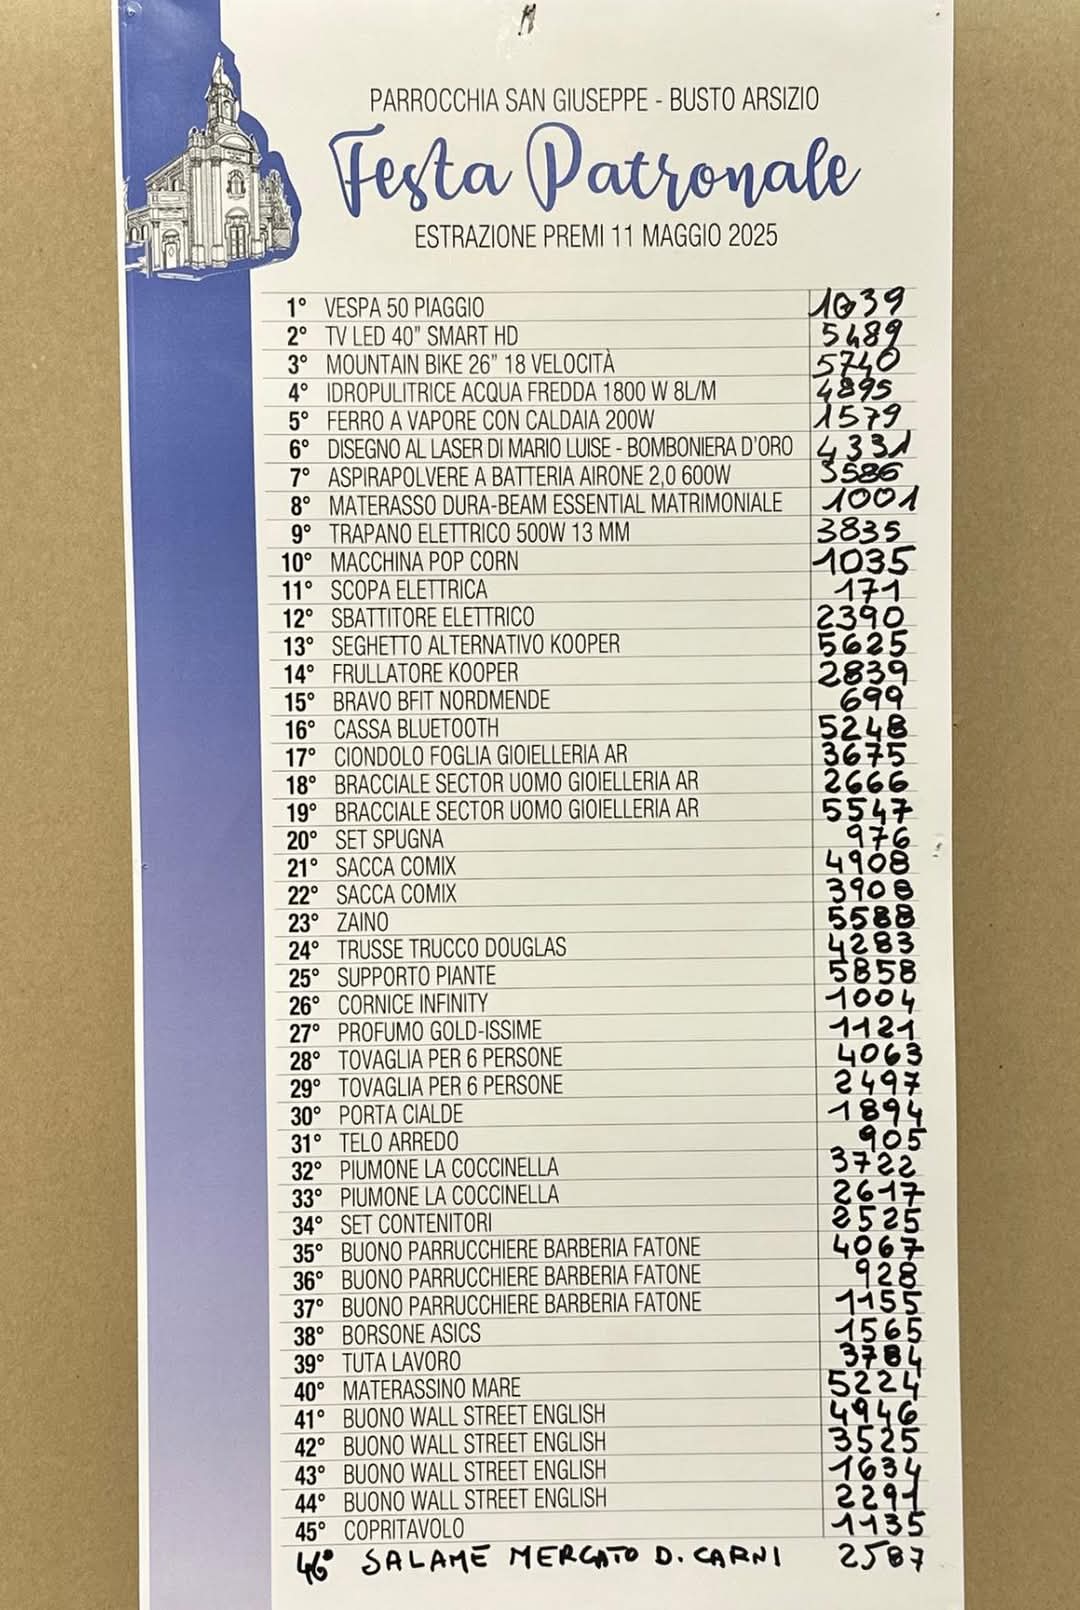 PARROCCHIA SAN GIUSEPPE - BUSTO ARSIZIO
Festa Patronale
ESTRAZIONE PREMI 11 MAGGIO 2025
1° VESPA 50 PIAGGIO 1039
2° TV LED 40" SMART HD 5489
3° MOUNTAIN BIKE 26" 18 VELOCITÀ 5740
4° IDROPULITRICE ACQUA FREDDA 1800 W 8L/M 4895
5° FERRO A VAPORE CON CALDAIA 200W 1579
6° DISEGNO AL LASER DI MARIO LUISE - BOMBONIERA D'ORO 4331
7° ASPIRAPOLVERE A BATTERIA AIRONE 2,0 600W 3586
8° MATERASSO DURA-BEAM ESSENTIAL MATRIMONIALE 1001
9° TRAPANO ELETTRICO 500W 13 MM 3835
10° MACCHINA POP CORN 1035
11° SCOPA ELETTRICA 171
12° SBATTITORE ELETTRICO 2390
13° SEGHETTO ALTERNATIVO KOOPER 5625
14° FRULLATORE KOOPER 2839
15° BRAVO BFIT NORDMENDE 699
16° CASSA BLUETOOTH 5248
17° CIONDOLO FOGLIA GIOIELLERIA AR 3675
18° BRACCIALE SECTOR UOMO GIOIELLERIA AR 2666
19° BRACCIALE SECTOR UOMO GIOIELLERIA AR 5547
20° SET SPUGNA 976
21° SACCA COMIX 4908
22° SACCA COMIX 3908
23° ZAINO 5588
24° TRUSSE TRUCCO DOUGLAS 4283
25° SUPPORTO PIANTE 5858
26° CORNICE INFINITY 1004
27° PROFUMO GOLD-ISSIME 1121
28° TOVAGLIA PER 6 PERSONE 4063
29° TOVAGLIA PER 6 PERSONE 2497
30° PORTA CIALDE 1894
31° TELO ARREDO 905
32° PIUMONE LA COCCINELLA 3722
33° PIUMONE LA COCCINELLA 2617
34° SET CONTENITORI 2525
35° BUONO PARRUCCHIERE BARBERIA FATONE 4067
36° BUONO PARRUCCHIERE BARBERIA FATONE 928
37° BUONO PARRUCCHIERE BARBERIA FATONE 1155
38° BORSONE ASICS 1565
39° TUTA LAVORO 3784
40° MATERASSINO MARE 5224
41° BUONO WALL STREET ENGLISH 4946
42° BUONO WALL STREET ENGLISH 3525
43° BUONO WALL STREET ENGLISH 1634
44° BUONO WALL STREET ENGLISH 2291
45° COPRITAVOLO 1135
46° SALAME MERCATO D. CARNI 2587